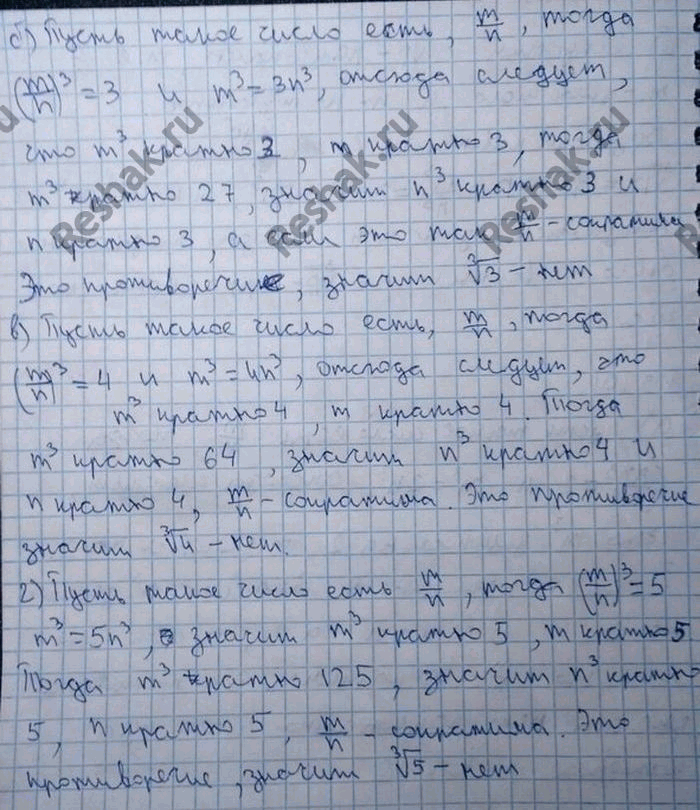 б) Пусть такое число есть, m/n, тогда
(m/n)³ = 3 и m³ = 3n³, отсюда следует,
что m³ кратно 3, m кратно 3, тогда
m³ кратно 27, значит n³ кратно 3 и
n кратно 3, а если это так m/n - сократима
Это противоречие, значит ∛3 - нет
в) Пусть такое число есть, m/n, тогда
(m/n)³ = 4 и m³ = 4n³, отсюда следует, что
m³ кратно 4, m кратно 4. Тогда
m³ кратно 64, значит n³ кратно 4 и
n кратно 4, m/n - сократима. Это противоречие
значит ∛4 - нет.
г) Пусть такое число есть m/n, тогда (m/n)³ = 5
m³ = 5n³, значит m³ кратно 5, m кратно 5
Тогда m³ кратно 125, значит n³ кратно
5, n кратно 5, m/n - сократима. Это
противоречие, значит ∛5 - нет
Reshak.ru
Reshak.ru
Reshak.ru